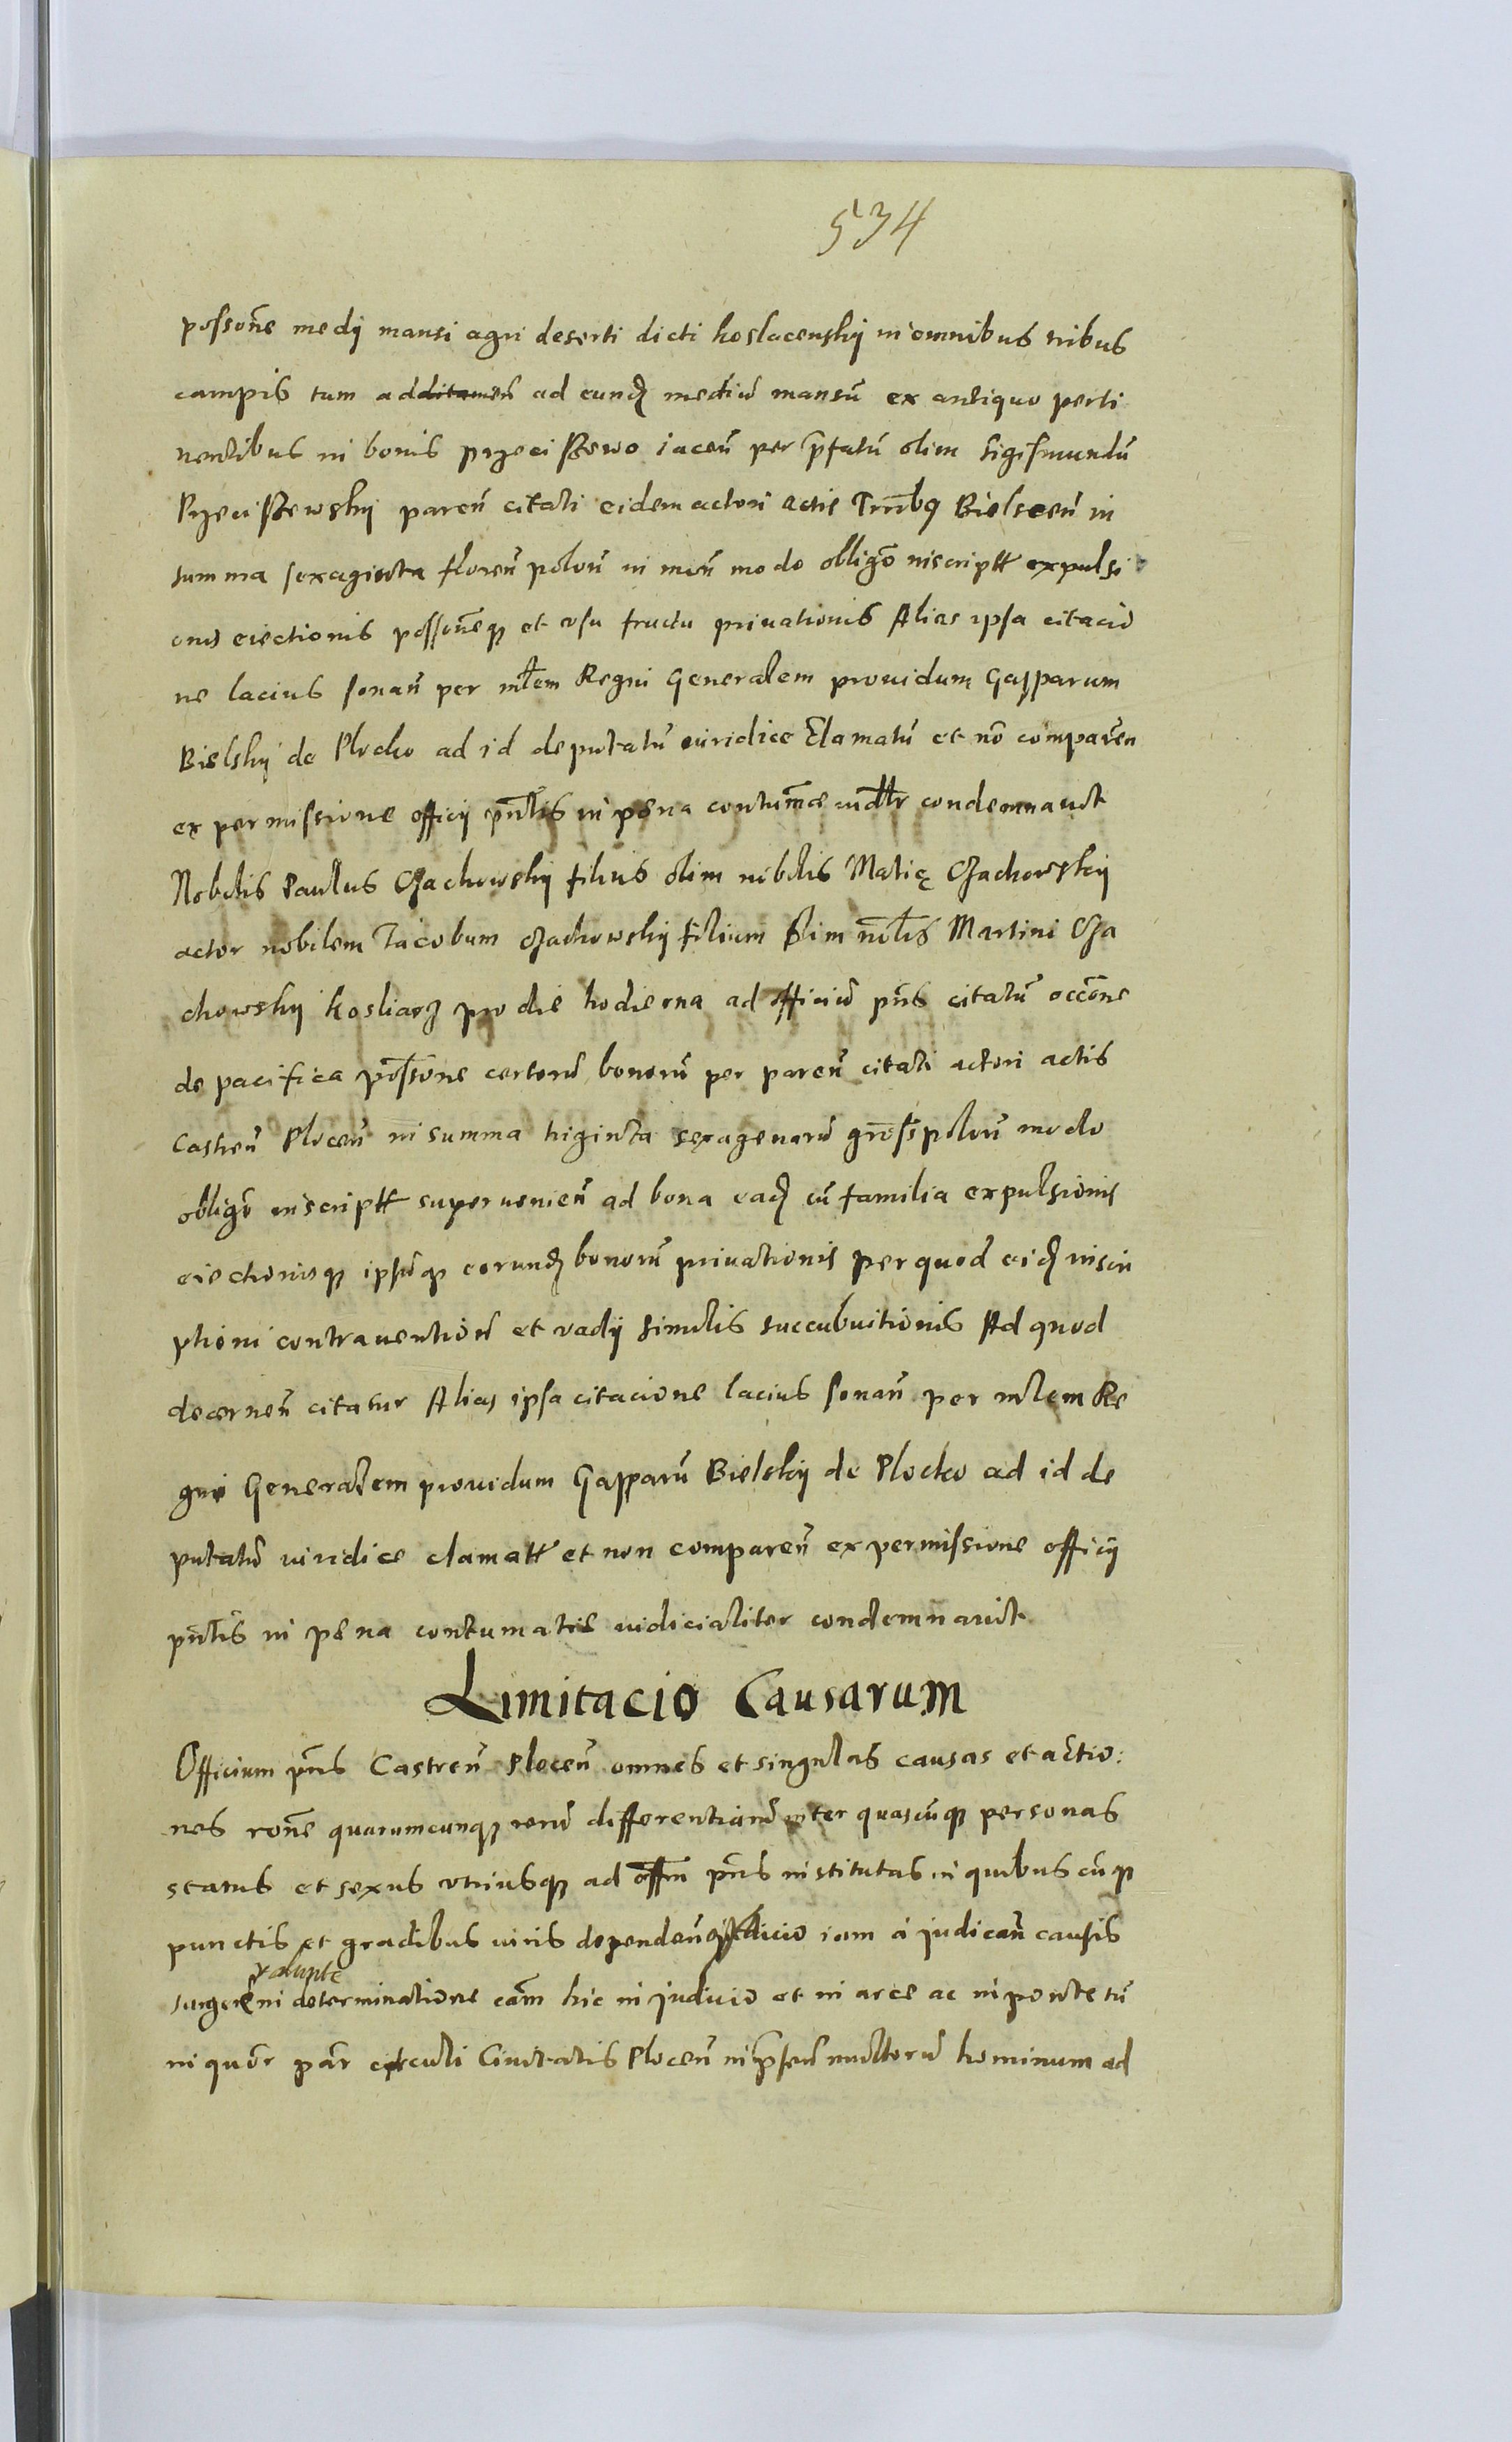 534
possone medij mansi agri deserti dicti koslacenskij in omnibus tribus
campis tum additamen ad eund mediu mansu ex antiquo perti
nentibus in bonis przeciszewo iacen per pfatu olim Sigismundu
Przeciszewskij paren citati eidem actori actis Trrlibq Bielscen in
summa sexaginta floren polon in men modo obligo inscriptt expulsi
onis eiectionis possoneq et vsu fructu priuationis Alias ipsa citacio
ne lacius sonan per mlem Regni Generalem prouidum Gasparum
Bielskij de Plocko ad id deputatu iuridice clamatu et no comparen
ex permissione officij pntis in pena contumace iudlr condemnauit
Nobilis Paulus Czachowskij filius olim nobilis Matie Czachowskij
actor nobilem Jacobum Czachowskij filium olim nolis Martini Cza
chowskij Kosliarz pro die hodierna ad officiu pns citatu occone
de pacifica possone certoru bonoru per paren citati actori actis
Castren Plocen in summa triginta sexagenaru gross polon modo
obligo inscriptt superuenien ad bona ead cu familia expulsionis
eiectionisq ipsuq eorund bonoru priuationis per quod eid inscri
ptioni contrauention et vadij similis succubuitionis Ad quod
decernen citatur Alias ipsa citacione lacius sonan per mlem Re
gni Generalem prouidum Gasparu Bielskij de Plocko ad id de
putatu iuridice clamatt et non comparen ex permissione officij
pntis in pena contumatie iudicialiter condemnauit
Limitacio Causarum
Officium pns Castren Plocen omnes et singulas causas et actio:
nes rone quarumcunq reru differentiaru inter quascuq personas
status et sexus vtriusq ad offm pns institutas in quibus cuq
punctis et gradibus iuris dependen iudicio iam a judican causis
surgere in determinatione cam hic in judicio et in arce ac in ponte tu
in quor par circuli Ciuitatis Plocen in psen multoru hominum ad